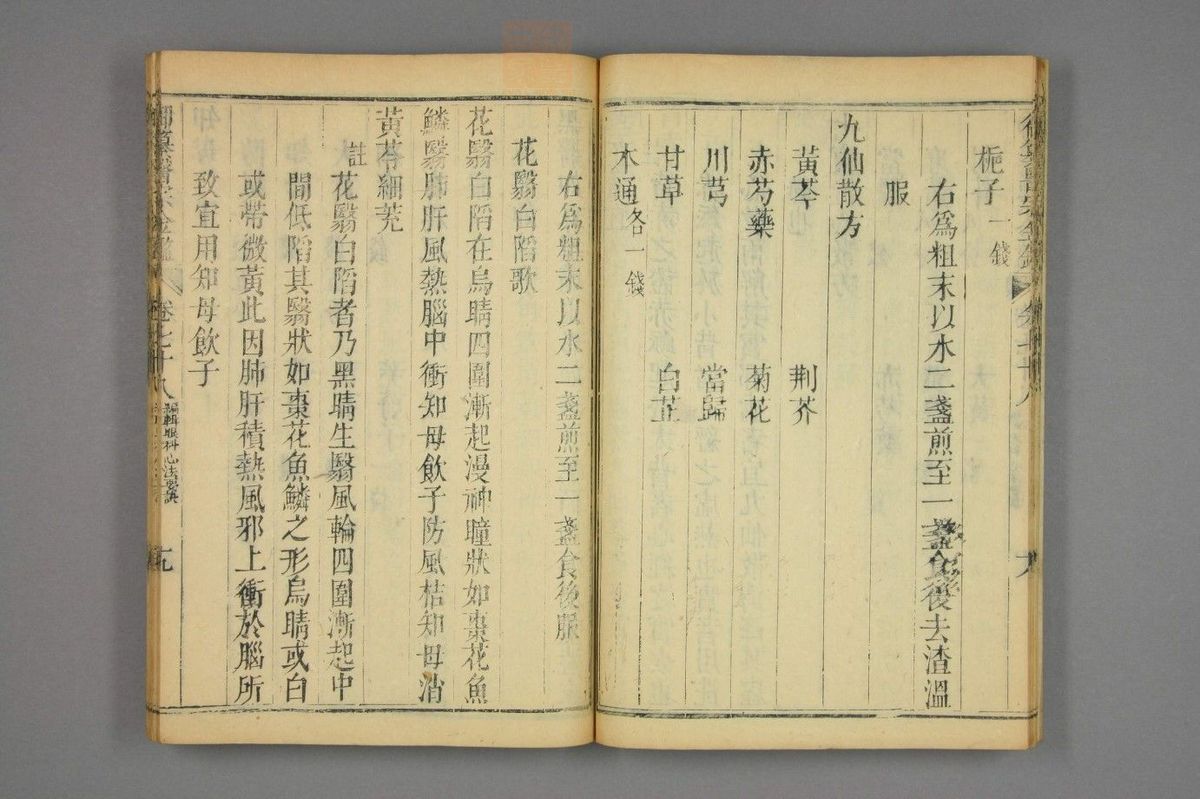 梔子一錢
右爲粗末以水二盞煎至一盞食後去渣溫
服
九仙散方
黃芩 荆芥
赤芍藥 菊花
川芎 當歸
甘草 白芷
木通各一錢
右爲粗末以水二盞煎至一盞食後服
花翳白陷歌
花翳白陷在烏睛四圍漸起漫神瞳狀如棗花魚
鱗翳肺肝風熱腦中衝知母飲子防風桔知母消
黃芩細茺
註花翳白陷者乃黑睛生翳風輪四圍漸起中
間低陷其翳狀如棗花魚鱗之形烏睛或白
或帶微黃此因肺肝積熱風邪上衝於腦所
致宜用知母飲子
卷七十八 編輯眼科心法要訣